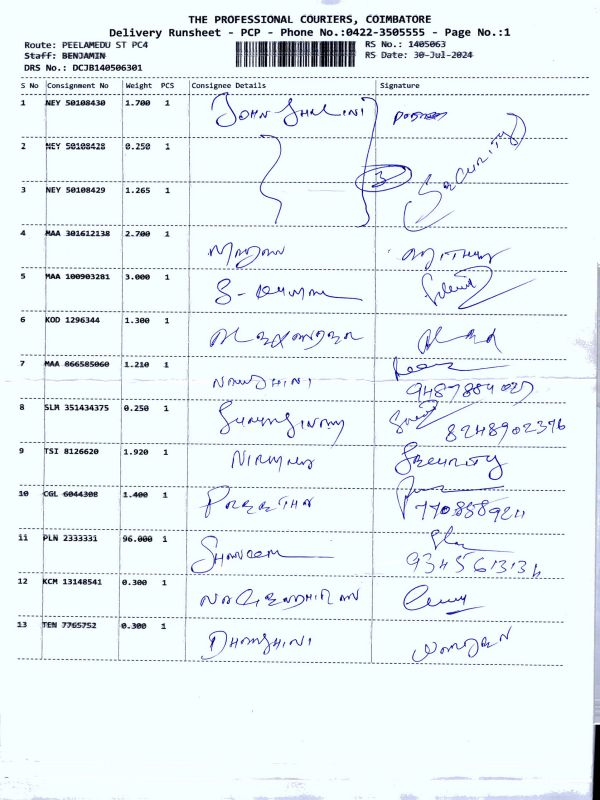 THE PROFESSIONAL COURIERS, COIMBATORE
Delivery Runsheet - PCP - Phone No.:0422-3505555 - Page No.:1
Route: PEELAMEDU ST PC4 RS No.: 1405063
Staff: BENJAMIN RS Date: 30-Jul-2024
DRS No.: DCJB140506301
S No Consignment No Weight PCS Consignee Details Signature
1 NEY 50108430 1.700 1 JOHN SHALINI
2 NEY 50108428 0.250 1 SECURITY
3 NEY 50108429 1.265 1 3
4 MAA 301612138 2.700 1
5 MAA 100903281 3.000 1
6 KOD 1296344 1.300 1 ALEXANDER
7 MAA 866585060 1.210 1 NANDHINI
8 SLM 351434375 0.250 1 8248902376
9 TSI 8126620 1.920 1 NIRMALA SECURITY
10 CGL 6044308 1.400 1 PREETHA
11 PLN 2333331 96.000 1
12 KCM 13148541 0.300 1 NAGENDHIRAN
13 TEN 7765752 0.300 1 DHARSHINI